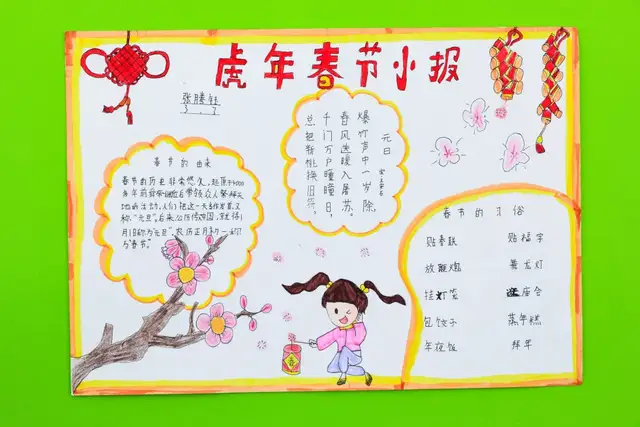 虎年春节小报
张
3、7
春节的由来
春节的历史非常悠久,起源于4000
多年前舜即位后带领众人祭拜天
地的活动。人们把这一天称为岁首又
称"元旦"。后来公历传 我国,就将1
月1日称为元旦",农历正月初一称
为"春节"。
元日
爆竹声中一岁除,
春风送暖入屠苏。
千门万户曈曈日,
总把新桃换旧符。
春节的习俗
贴春联 贴福字
放鞭炮 舞龙灯
挂灯笼 逛庙会
包饺子 蒸年糕
年夜饭 拜年
春